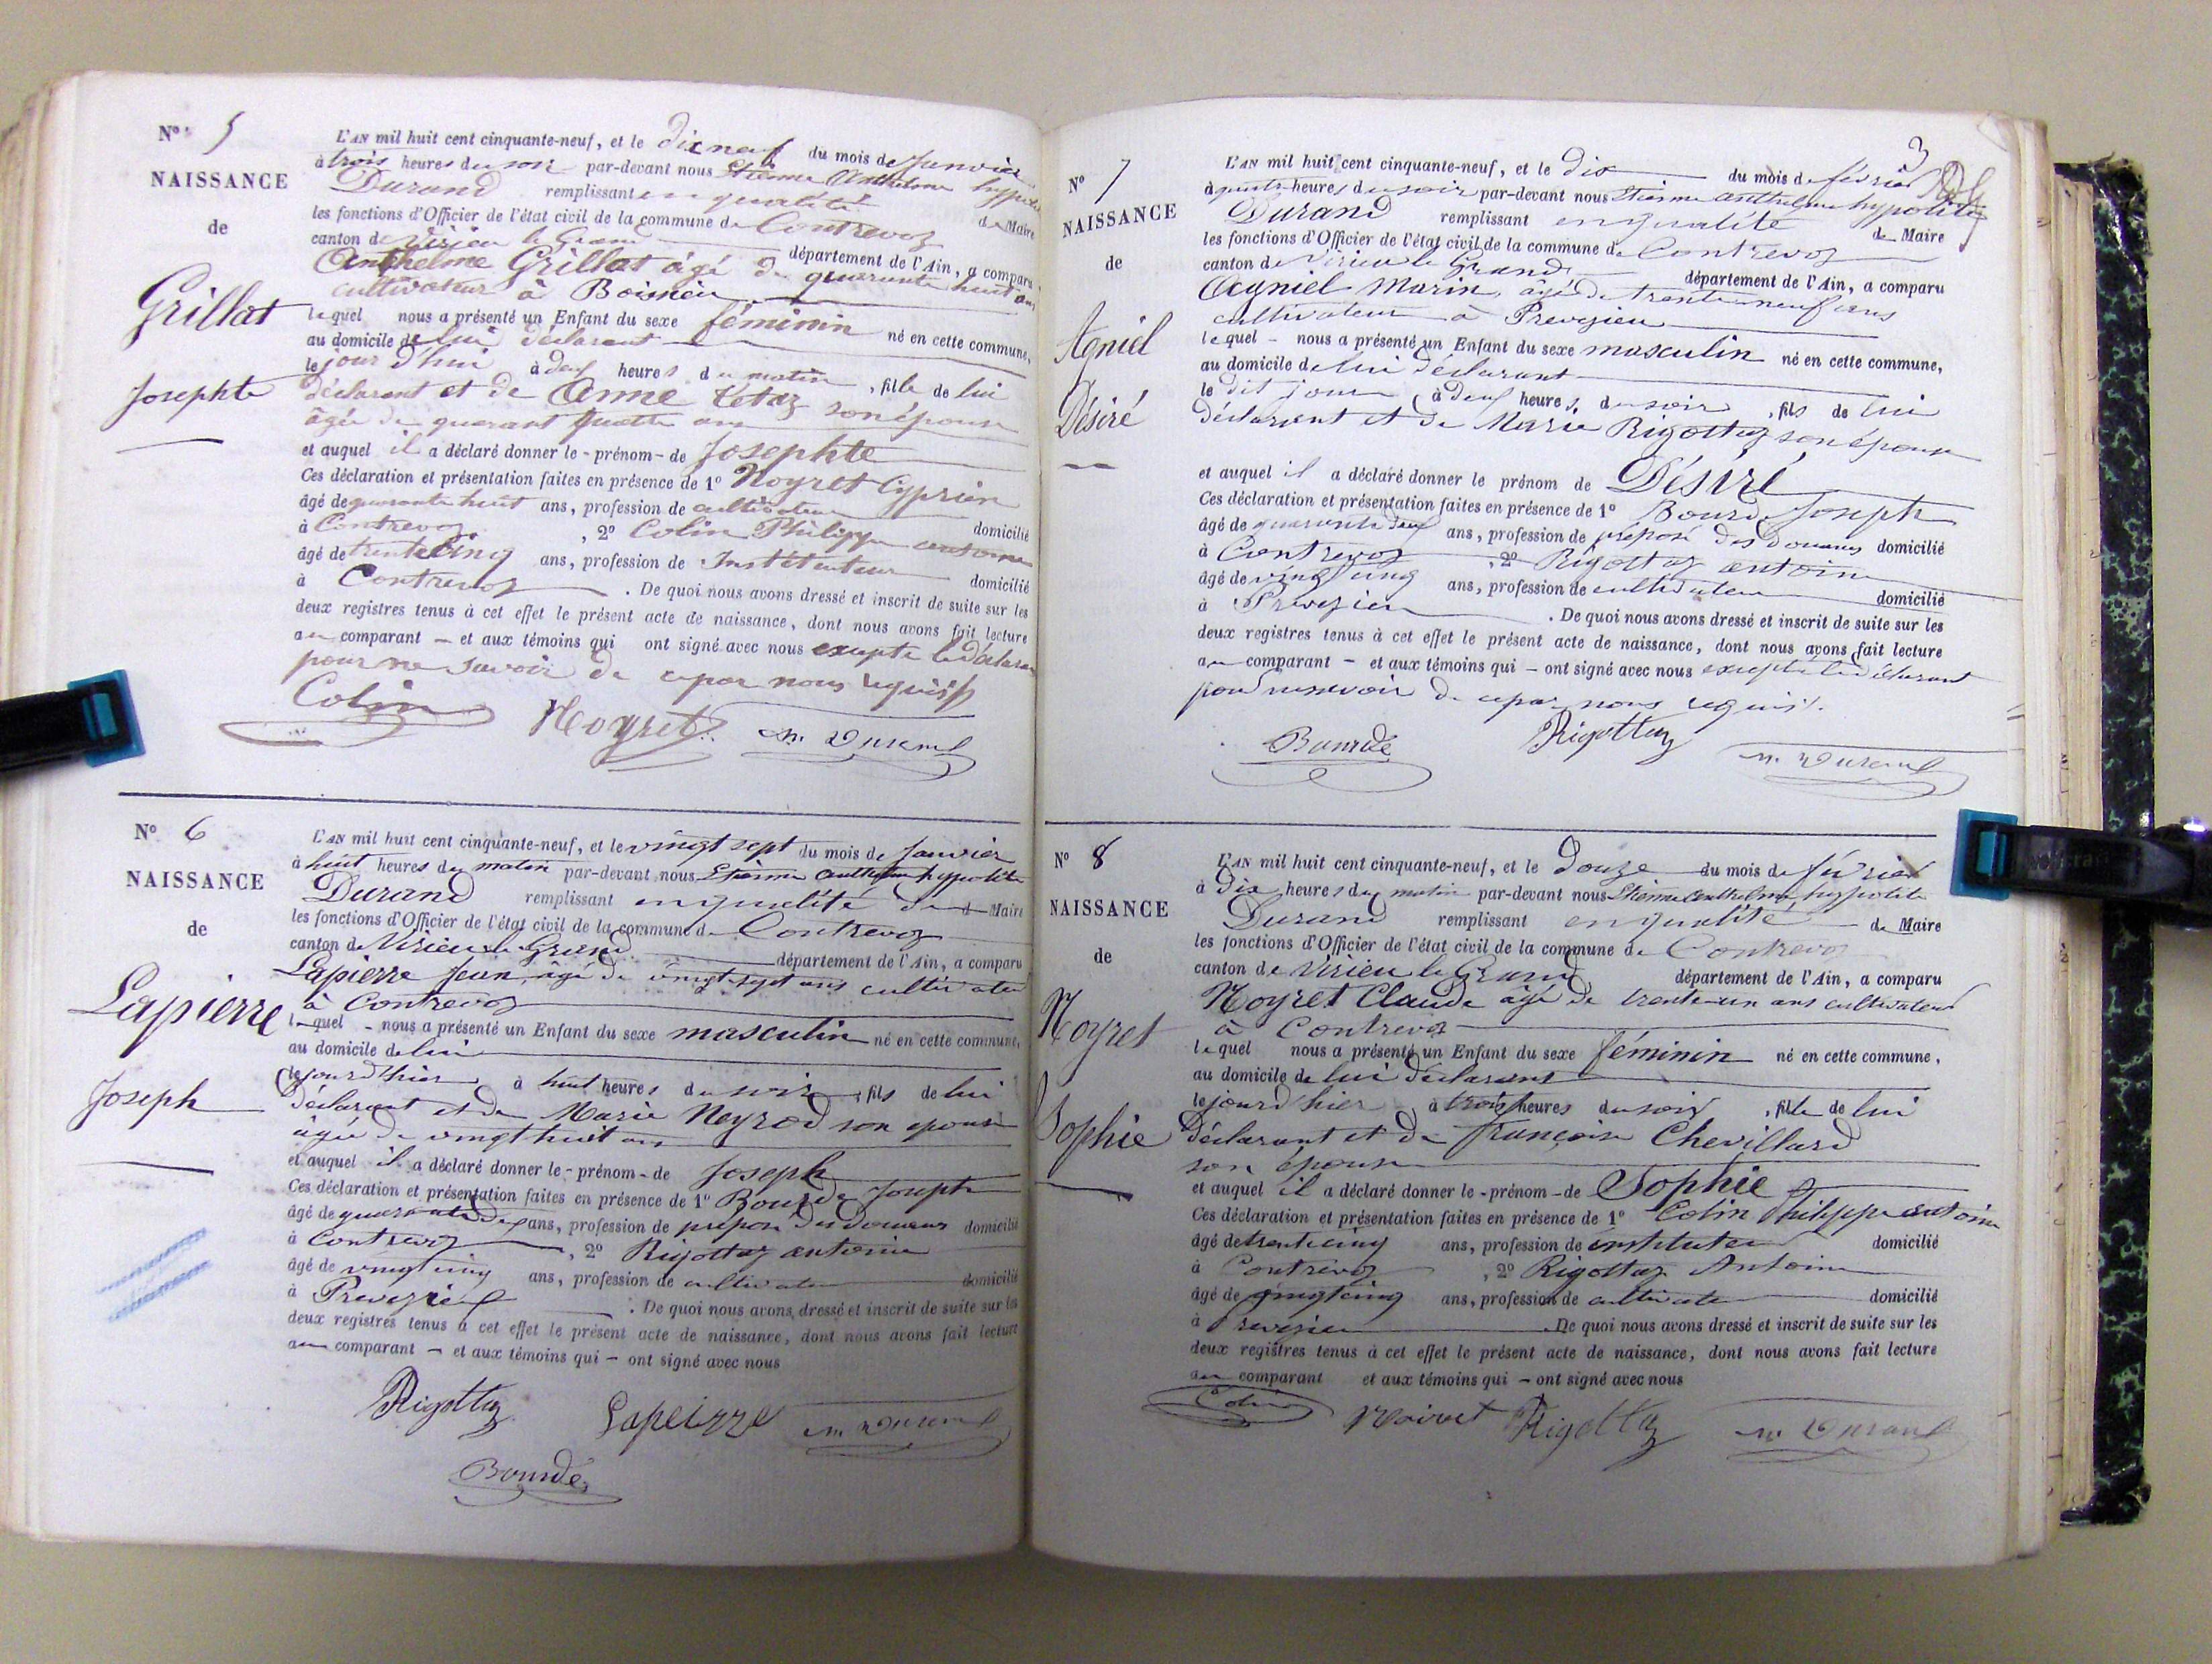 N° 5
NAISSANCE
de
Grillat
Josephte
L'AN mil huit cent cinquante-neuf, et le dix neuf du mois de Janvier
à trois heures du soir par-devant nous Etienne Anthelme hypolite
Durand remplissant en qualité de Maire
les fonctions d'Officier de l'état civil de la commune de Contrevoz
canton de Virieu le Grand département de l'Ain, a comparu
Anthelme Grillat âgé de quarante huit ans
cultivateur à Boissieu
lequel nous a présenté un Enfant du sexe féminin né en cette commune,
au domicile de lui déclarant
le jour d'hui à deux heures du matin, fille de lui
déclarant et de Anne Tétaz son épouse
âgée de quarant quatre ans
et auquel il a déclaré donner le - prénom - de Josephte
Ces déclaration et présentation faites en présence de 1° Noyret Cyprien
âgé de quarante huit ans, profession de cultivateur domicilié
à Contrevoz, 2° Colin Philippe antoine
âgé de trente cinq ans, profession de Instituteur domicilié
à Contrevoz. De quoi nous avons dressé et inscrit de suite sur les
deux registres tenus à cet effet le présent acte de naissance, dont nous avons fait lecture
au comparant - et aux témoins qui ont signé avec nous excepté le déclarant
pour ne savoir de ce par nous requis
Colin Noyret m. Durand
N° 6
NAISSANCE
de
Lapierre
Joseph
L'AN mil huit cent cinquante-neuf, et le vingt sept du mois de Janvier
à huit heures du matin par-devant nous Etienne anthelme hypolite
Durand remplissant en qualité de de Maire
les fonctions d'Officier de l'état civil de la commune de Contrevoz
canton de Virieu le Grand département de l'Ain, a comparu
Lapierre Jean, âgé de vingt sept ans cultivateur
à Contrevoz
lequel - nous a présenté un Enfant du sexe masculin né en cette commune,
au domicile de lui
le jour d'hier à huit heures du soir, fils de lui
déclarant et de Marie Neyrod son epouse
âgée de vingt huit ans
et auquel il a déclaré donner le - prénom - de Joseph
Ces déclaration et présentation faites en présence de 1° Bourde Joseph
âgé de quarante deux ans, profession de préposé des douanes domicilié
à Contrevoz, 2° Rigottaz antoine
âgé de vingt cinq ans, profession de cultivateur domicilié
à Prevezieu. De quoi nous avons dressé et inscrit de suite sur les
deux registres tenus à cet effet le présent acte de naissance, dont nous avons fait lecture
au comparant - et aux témoins qui - ont signé avec nous
Rigottaz Lapeirre m. Durand
Bourde
3
N° 7
NAISSANCE
de
Agniel
Désiré
L'AN mil huit cent cinquante-neuf, et le dix du mois de février
à quatre heures du soir par-devant nous Etienne anthelme hypolite
Durand remplissant en qualité de Maire
les fonctions d'Officier de l'état civil de la commune de Contrevoz
canton de Virieu le Grand département de l'Ain, a comparu
Agniel Marin, âgé de trente neuf ans
cultivateur à Prevezieu
lequel - nous a présenté un Enfant du sexe masculin né en cette commune,
au domicile de lui déclarant
le dit jour à deux heures du soir, fils de lui
déclarant et de Marie Rigottaz son épouse
et auquel il a déclaré donner le prénom de Désiré
Ces déclaration et présentation faites en présence de 1° Bourde Joseph
âgé de quarante deux ans, profession de préposé des douanes domicilié
à Contrevoz, 2° Rigottaz antoine
âgé de vingt cinq ans, profession de cultivateur domicilié
à Prevezieu. De quoi nous avons dressé et inscrit de suite sur les
deux registres tenus à cet effet le présent acte de naissance, dont nous avons fait lecture
au comparant - et aux témoins qui - ont signé avec nous excepté le déclarant
pour ne savoir de ce par nous requis.
Bourde Rigottaz m. Durand
N° 8
NAISSANCE
de
Noyret
Sophie
L'AN mil huit cent cinquante-neuf, et le douze du mois de février
à dix heures du matin par-devant nous Etienne anthelme hypolite
Durand remplissant en qualité de Maire
les fonctions d'Officier de l'état civil de la commune de Contrevoz
canton de Virieu le Grand département de l'Ain, a comparu
Noyret Claude âgé de trente-un ans cultivateur
à Contrevoz
lequel nous a présenté un Enfant du sexe féminin né en cette commune,
au domicile de lui déclarant
le jour d'hier à trois heures du soir, fille de lui
déclarant et de françoise Chevillard
son épouse
et auquel il a déclaré donner le - prénom - de Sophie
Ces déclaration et présentation faites en présence de 1° Colin Philippe antoine
âgé de trente cinq ans, profession de instituteur domicilié
à Contrevoz, 2° Rigottaz Antoine
âgé de vingt cinq ans, profession de cultivateur domicilié
à Prevezieu. De quoi nous avons dressé et inscrit de suite sur les
deux registres tenus à cet effet le présent acte de naissance, dont nous avons fait lecture
au comparant et aux témoins qui - ont signé avec nous
Colin Noiret Rigottaz m. Durand